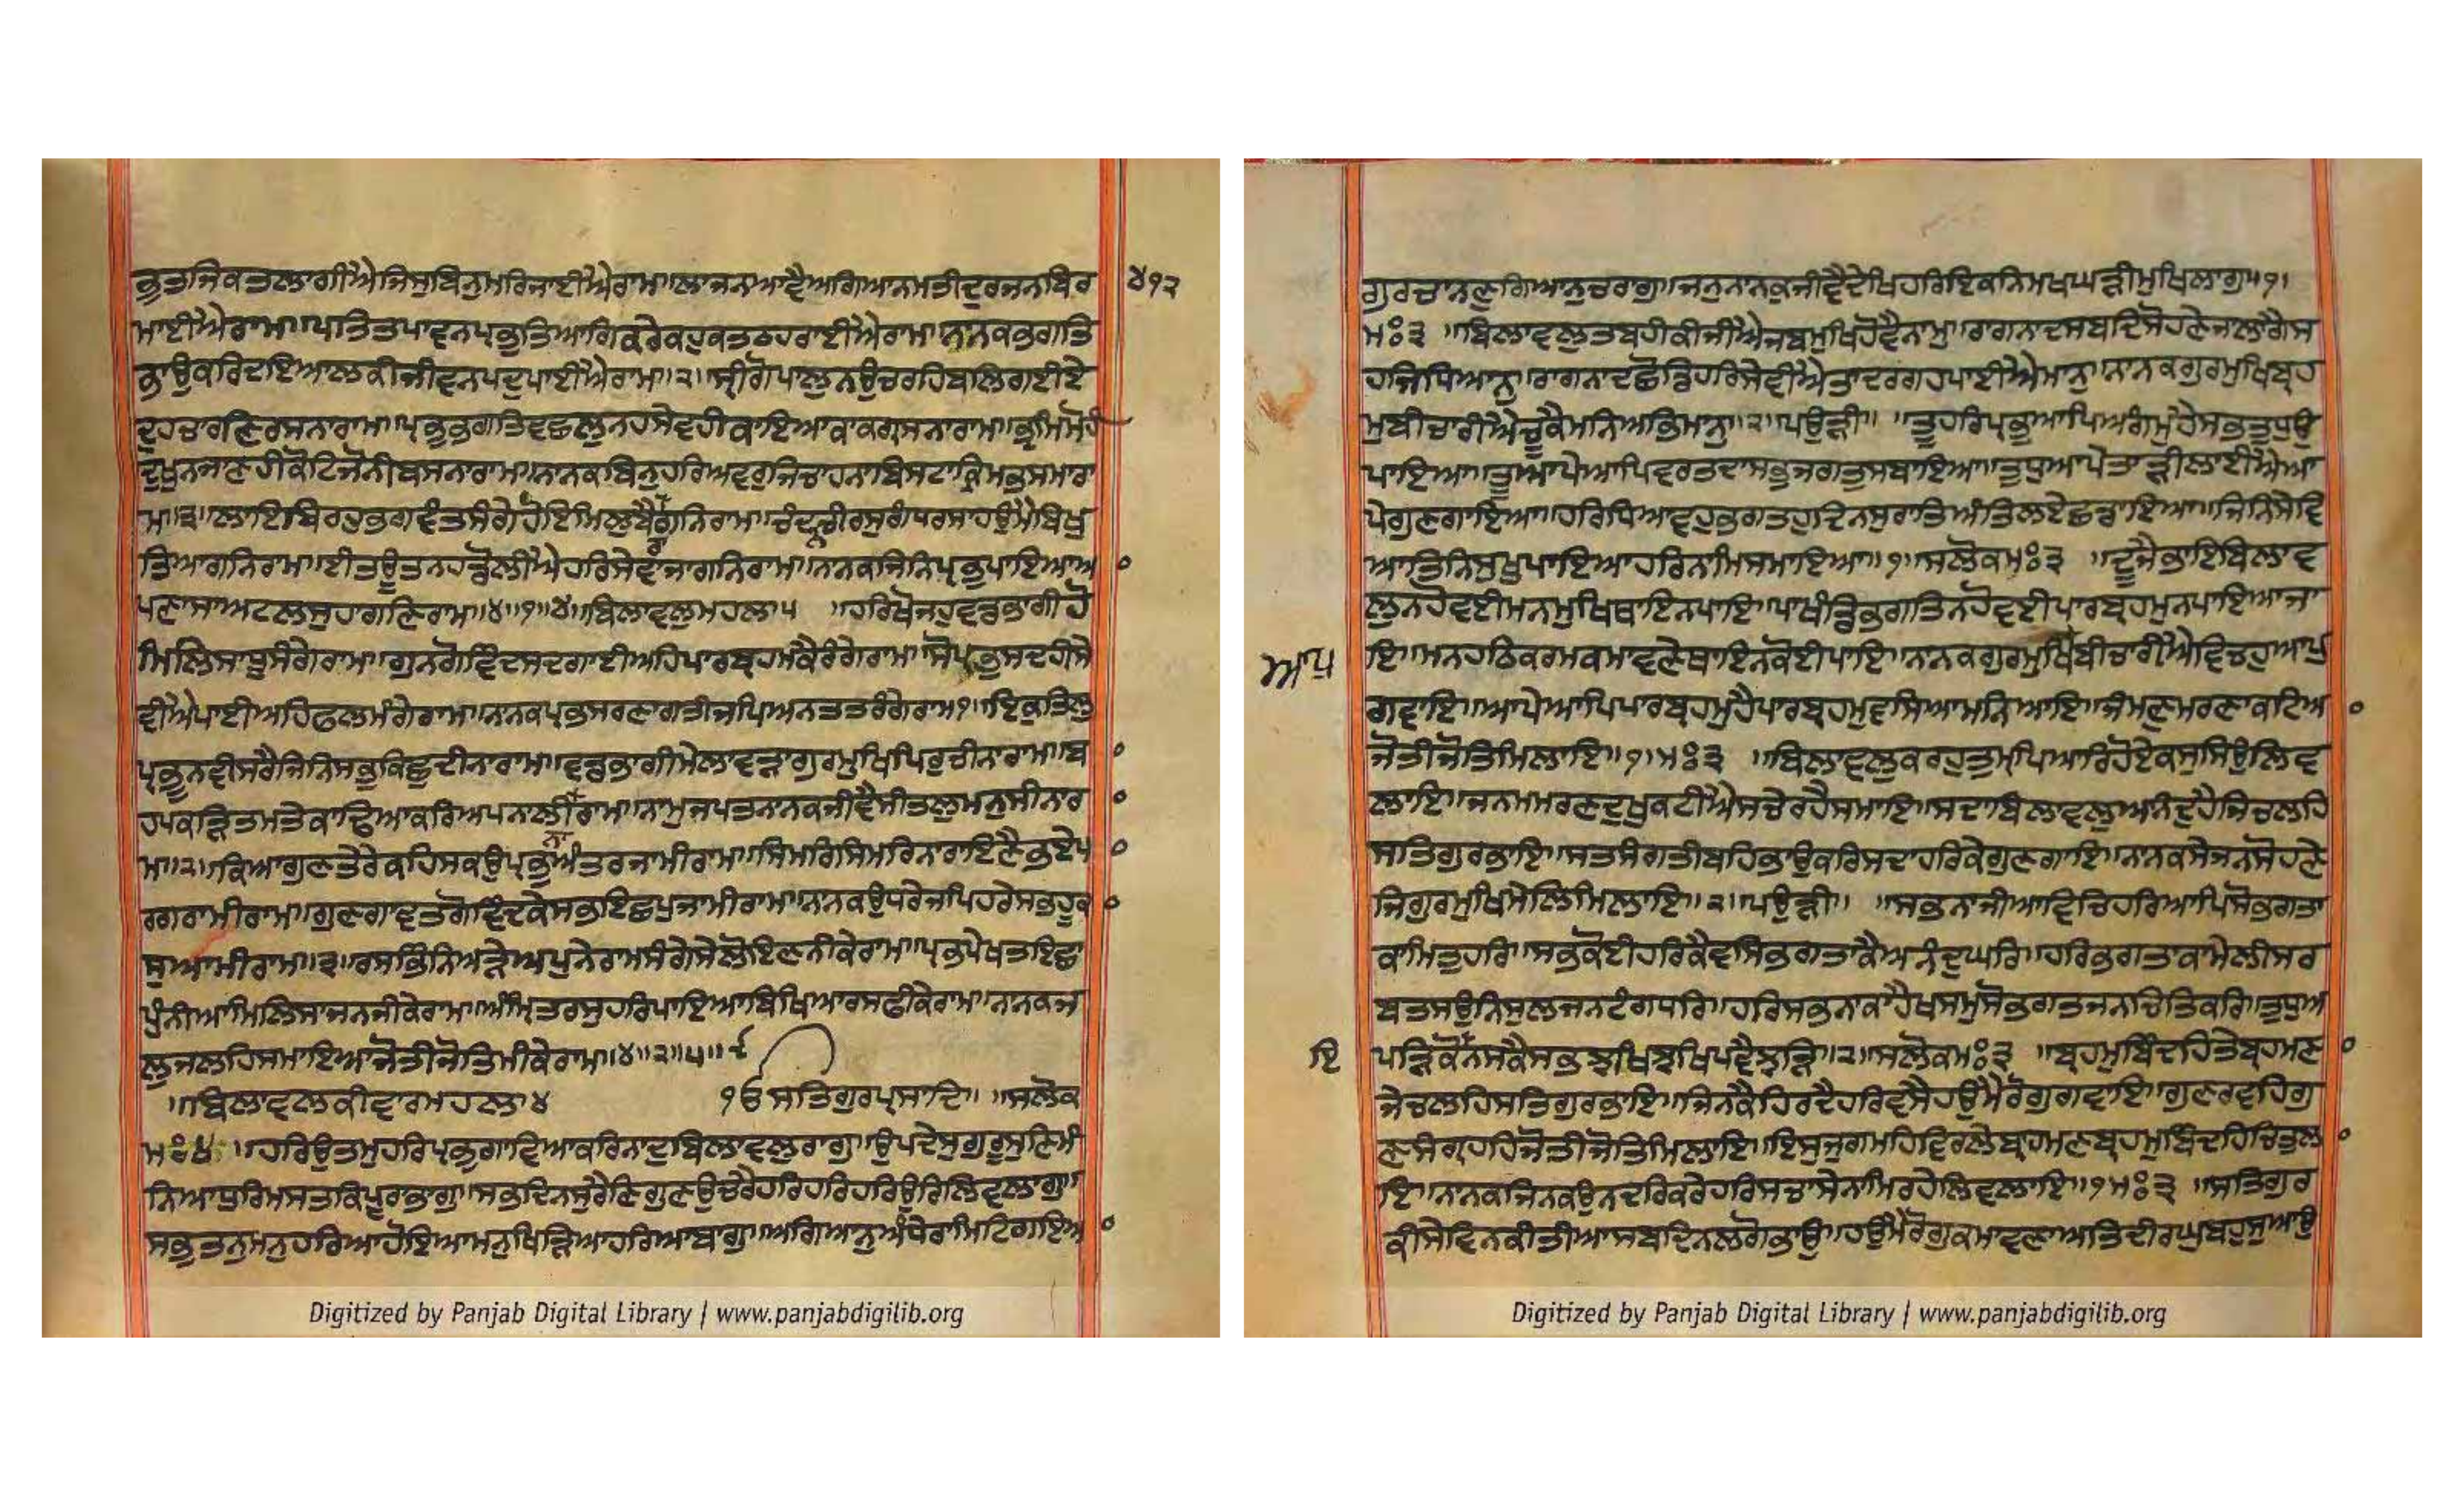 ਭੂਤਜਿਕਤਲਾਗੀਐਜਿਸੁਬਿਨੁਮਰਿਜਾਈਐਰਾਮ॥ਲਾਜਨਆਵੈਅਗਿਆਨਮਤੀਦੁਰਜਨਬਿਰ
੪੧੨
ਮਾਈਐਰਾਮ॥ਪਤਿਤਪਾਵਨਪ੍ਰਭੁਤਿਆਗਿਕਰੇਕਹੁਕਤਠਹਰਾਈਐਰਾਮ॥ਨਾਨਕਭਗਤਿ
ਭਾਉਕਰਿਦਇਆਲਕੀਜੀਵਨਪਦੁਪਾਈਐਰਾਮ॥੨॥ਸ੍ਰੀਗੋਪਾਲੁਨਉਚਰਹਿਬਲਿਗਈਏ
ਦੁਹਚਾਰਣਿਰਸਨਾਰਾਮ॥ਪ੍ਰਭੁਭਗਤਿਵਛਲੁਨਹਸੇਵਹੀਕਾਇਆਕਾਕਗ੍ਰਸਨਾਰਾਮ॥ਭ੍ਰਮਿਮੋਹੀ
ਦੂਖੁਨਜਾਣਹੀਕੋਟਿਜੋਨੀਬਸਨਾਰਾਮ॥ਨਾਨਕਬਿਨੁਹਰਿਅਵਰੁਜਿਚਾਹਨਾਬਿਸਟਾਕ੍ਰਿਮਭਸਮਾਰਾ
ਮ॥੩॥ਲਾਇਬਿਰਹੁਭਗਵੰਤਸੰਗੇਹੋਇਮਿਲੁਬੈਰਾਗਨਿਰਾਮ॥ਚੰਦਨਚੀਰਸੁਗੰਧਰਸਾਹਉਮੈਬਿਖੁ
ਤਿਆਗਨਿਰਾਮ॥ਈਤਊਤਨਹਡੋਲੀਐਹਰਿਸੇਵਾਜਾਗਨਿਰਾਮ॥ਨਾਨਕਜਿਨਿਪ੍ਰਭੁਪਾਇਆਅ
ਪਣਾਸਾਅਟਲਸੁਹਾਗਣਿਰਾਮ॥੪॥੧॥੪॥ਬਿਲਾਵਲੁਮਹਲਾ੫ ॥ਹਰਿਖੋਜਹੁਵਡਭਾਗੀਹੋ
ਮਿਲਿਸਾਧੂਸੰਗੇਰਾਮ॥ਗੁਨਗੋਵਿੰਦਸਦਗਾਈਅਹਿਪਾਰਬ੍ਰਹਮਕੈਰੰਗੇਰਾਮ॥ਸੋਪ੍ਰਭੁਸਦਹੀਸੇ
ਵੀਐਪਾਈਅਹਿਫਲਮੰਗੇਰਾਮ॥ਨਾਨਕਪ੍ਰਭਸਰਣਾਗਤੀਜਪਿਅਨਤਤਰੰਗੇਰਾਮ੧॥ਇਕੁਤਿਲੁ
ਪ੍ਰਭੂਨਵੀਸਰੈਜਿਨਿਸਭੁਕਿਛੁਦੀਨਾਰਾਮ॥ਵਡਭਾਗੀਮੇਲਾਵੜਾਗੁਰਮੁਖਿਪਿਰੁਚੀਨਾਰਾਮ॥ਬ
ਹਪਕੜਿਤਮਤੇਕਾਢਿਆਕਰਿਅਪਨਾਲੀਨਾਰਾਮ॥ਨਾਮੁਜਪਤਨਾਨਕਜੀਵੈਸੀਤਲੁਮਨੁਸੀਨਾਰ
ਮ॥੨॥ਕਿਆਗੁਣਤੇਰੇਕਹਿਸਕਉਪ੍ਰਭਅੰਤਰਜਾਮੀਰਾਮ॥ਸਿਮਰਿਸਿਮਰਿਨਾਰਾਇਣੈਭਏਪ
ਰਗਰਾਮੀਰਾਮ॥ਗੁਣਗਾਵਤਗੋਵਿੰਦਕੇਸਭਇਛਪੁਜਾਮੀਰਾਮ॥ਨਾਨਕਉਧਰੇਜਪਿਹਰੇਸਭਹੂਕ
ਸੁਆਮੀਰਾਮ॥੩॥ਰਸਭਿੰਨਿਅੜੇਅਪੁਨੇਰਾਮਸੰਗੇਸੇਲੋਇਣਨੀਕੇਰਾਮ॥ਪ੍ਰਭਪੇਖਤਇਛਾ
ਪੁੰਨੀਆਮਿਲਿਸਾਜਨਜੀਕੇਰਾਮ॥ਅੰਮ੍ਰਿਤਰਸੁਹਰਿਪਾਇਆਬਿਖਿਆਰਸਫੀਕੇਰਾਮ॥ਨਾਨਕਜ
ਲੁਜਲਹਿਸਮਾਇਆਜੋਤੀਜੋਤਿਮੀਕੇਰਾਮ॥੪॥੨॥੫॥੯
॥ਬਿਲਾਵਲਕੀਵਾਰਮਹਲਾ੪ ੴਸਤਿਗੁਰਪ੍ਰਸਾਦਿ॥ ॥ਸਲੋਕ
ਮਃ੪ ॥ਹਰਿਉਤਮੁਹਰਿਪ੍ਰਭੁਗਾਵਿਆਕਰਿਨਾਦੁਬਿਲਾਵਲੁਰਾਗੁ॥ਉਪਦੇਸੁਗੁਰੂਸੁਣਿਮੰ
ਨਿਆਧੁਰਿਮਸਤਕਿਪੂਰਭਾਗੁ॥ਸਭਦਿਨਸੁਰੈਣਿਗੁਣਉਚਰੈਹਰਿਹਰਿਹਰਿਉਰਿਲਿਵਲਾਗੁ॥
ਸਭੁਤਨੁਮਨੁਹਰਿਆਹੋਇਆਮਨੁਖਿੜਿਆਹਰਿਆਬਾਗੁ॥ਅਗਿਆਨੁਅੰਧੇਰਾਮਿਟਿਗਇਆ
ਗੁਰਚਾਨਣੁਗਿਆਨੁਚਰਾਗੁ॥ਜਨੁਨਾਨਕੁਜੀਵੈਦੇਖਿਹਰਿਇਕਨਿਮਖਘੜੀਮੁਖਿਲਾਗੁ॥੧॥
ਮਃ੩ ॥ਬਿਲਾਵਲੁਤਬਹੀਕੀਜੀਐਜਬਮੁਖਿਹੋਵੈਨਾਮੁ॥ਰਾਗਨਾਦਸਬਦਿਸੋਹਣੇਜਲਾਗੈਸ
ਹਜਿਧਿਆਨੁ॥ਰਾਗਨਾਦਛੋਡਿਹਰਿਸੇਵੀਐਤਾਦਰਗਹਪਾਈਐਮਾਨੁ॥ਨਾਨਕਗੁਰਮੁਖਿਬ੍ਰਹ
ਮੁਬੀਚਾਰੀਐਚੂਕੈਮਨਿਅਭਿਮਾਨੁ॥੨॥ਪਉੜੀ॥ ॥ਤੂਹਰਿਪ੍ਰਭੁਆਪਿਅਗੰਮੁਹੈਸਭਤੁਧੁਉ
ਪਾਇਆ॥ਤੂਆਪੇਆਪਿਵਰਤਦਾਸਭੁਜਗਤੁਸਬਾਇਆ॥ਤੁਧੁਆਪੇਤਾੜੀਲਾਈਐਆ
ਪੇਗੁਣਗਾਇਆ॥ਹਰਿਧਿਆਵਹੁਭਗਤਹੁਦਿਨਸੁਰਾਤਿਅੰਤਿਲਏਛਡਾਇਆ॥ਜਿਨਿਸੇਵਿ
ਆਤਿਨਿਸੁਖੁਪਾਇਆਹਰਿਨਾਮਿਸਮਾਇਆ॥੧॥ਸਲੋਕਮਃ੩ ॥ਦੂਜੈਭਾਇਬਿਲਾਵ
ਲੁਨਹੋਵਈਮਨਮੁਖਿਥਾਇਨਪਾਇ॥ਪਾਖੰਡਿਭਗਤਿਨਹੋਵਈਪਾਰਬ੍ਰਹਮੁਨਪਾਇਆਜਾ
ਇ॥ਮਨਹਠਿਕਰਮਕਮਾਵਣੇਥਾਇਨਕੋਈਪਾਇ॥ਨਾਨਕਗੁਰਮੁਖਿਬੀਚਾਰੀਐਵਿਚਹੁਆਪੁ
ਆਪੁ
ਗਵਾਇ॥ਆਪੇਆਪਿਪਾਰਬ੍ਰਹਮੁਹੈਪਾਰਬ੍ਰਹਮੁਵਸਿਆਮਨਿਆਇ॥ਜੰਮਣੁਮਰਣਾਕਟਿਅ
ਜੋਤੀਜੋਤਿਮਿਲਾਇ॥੧॥ਮਃ੩ ॥ਬਿਲਾਵਲੁਕਰਹੁਤੁਮ੍ਹਪਿਆਰਿਹੋਏਕਸੁਸਿਉਲਿਵ
ਲਾਇ॥ਜਨਮਮਰਣਦੁਖੁਕਟੀਐਸਚੇਰਹੈਸਮਾਇ॥ਸਦਾਬਿਲਾਵਲੁਅਨੰਦੁਹੈਜਿਚਲਹਿ
ਸਤਿਗੁਰਭਾਇ॥ਸਤਸੰਗਤੀਬਹਿਭਾਉਕਰਿਸਦਾਹਰਿਕੇਗੁਣਗਾਇ॥ਨਾਨਕਸੇਜਨਸੋਹਣੇ
ਜਿਗੁਰਮੁਖਿਮੇਲਿਮਿਲਾਇ॥੨॥ਪਉੜੀ॥ ॥ਸਭਨਾਜੀਆਵਿਚਿਹਰਿਆਪਿਸੋਭਗਤਾ
ਕਾਮਿਤੁਹਰਿ॥ਸਭੁਕੋਈਹਰਿਕੈਵਸਿਭਗਤਾਕੈਅਨੰਦੁਘਰਿ॥ਹਰਿਭਗਤਾਕਾਮੇਲੀਸਰ
ਬਤਸਉਨਿਸੁਲਜਨਟੰਗਧਰਿ॥ਹਰਿਸਭਨਾਕਾਹੈਖਸਮੁਸੋਭਗਤਜਨਚਿਤਿਕਰਿ॥ਤੁਧੁਅ
ਇ
ਪੜਿਕੋਨਸਕੈਸਭਝਖਿਝਖਿਪਵੈਝੜਿ॥੨॥ਸਲੋਕਮਃ੩ ॥ਬ੍ਰਹਮੁਬਿੰਦਹਿਤੇਬ੍ਰਹਮਣ
ਜੇਚਲਹਿਸਤਿਗੁਰਭਾਇ॥ਜਿਨਕੈਹਿਰਦੈਹਰਿਵਸੈਹਉਮੈਰੋਗੁਗਵਾਇ॥ਗੁਣਰਵਹਿਗੁ
ਣਸੰਗ੍ਰਹਹਿਜੋਤੀਜੋਤਿਮਿਲਾਇ॥ਇਸੁਜੁਗਮਹਿਵਿਰਲੇਬ੍ਰਾਹਮਣਬ੍ਰਹਮੁਬਿੰਦਹਿਚਿਤੁਲ
ਇ॥ਨਾਨਕਜਿਨਕਉਨਦਰਿਕਰੇਹਰਿਸਚਾਸੇਨਾਮਿਰਹੇਲਿਵਲਾਇ॥੧ਮਃ੩ ॥ਸਤਿਗੁਰ
ਕੀਸੇਵਨਕੀਤੀਆਸਬਦਿਨਲਗੋਭਾਉ॥ਹਉਮੈਰੋਗੁਕਮਾਵਣਾਅਤਿਦੀਰਘੁਬਹੁਸੁਆਉ
Digitized by Panjab Digital Library | www.panjabdigilib.org
Digitized by Panjab Digital Library | www.panjabdigilib.org